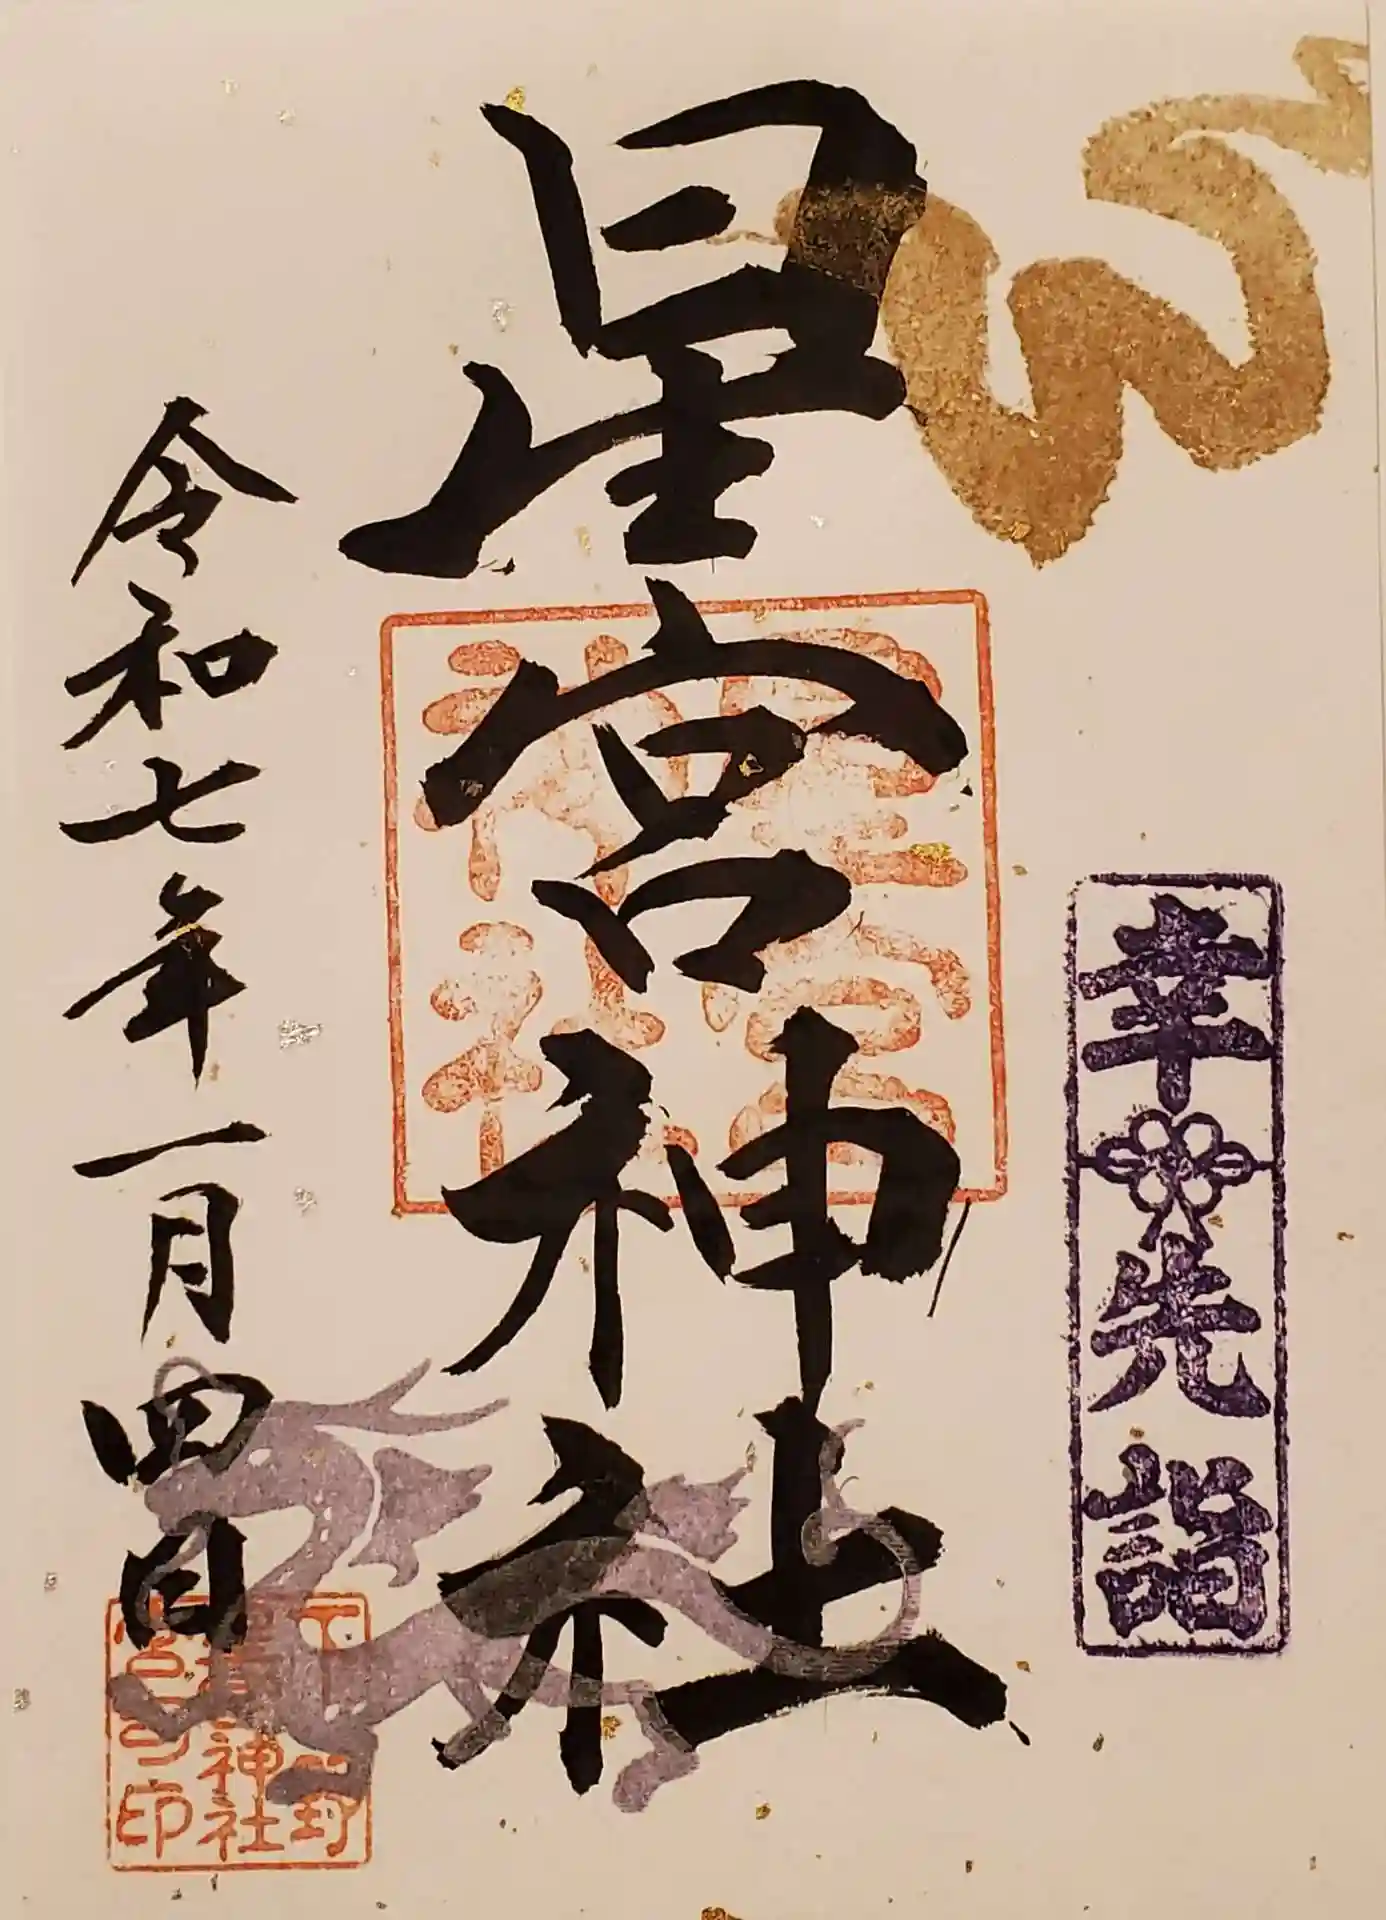 幸先詣
星宮神社
令和七年一月四日
下野
星宮神社
宮司印